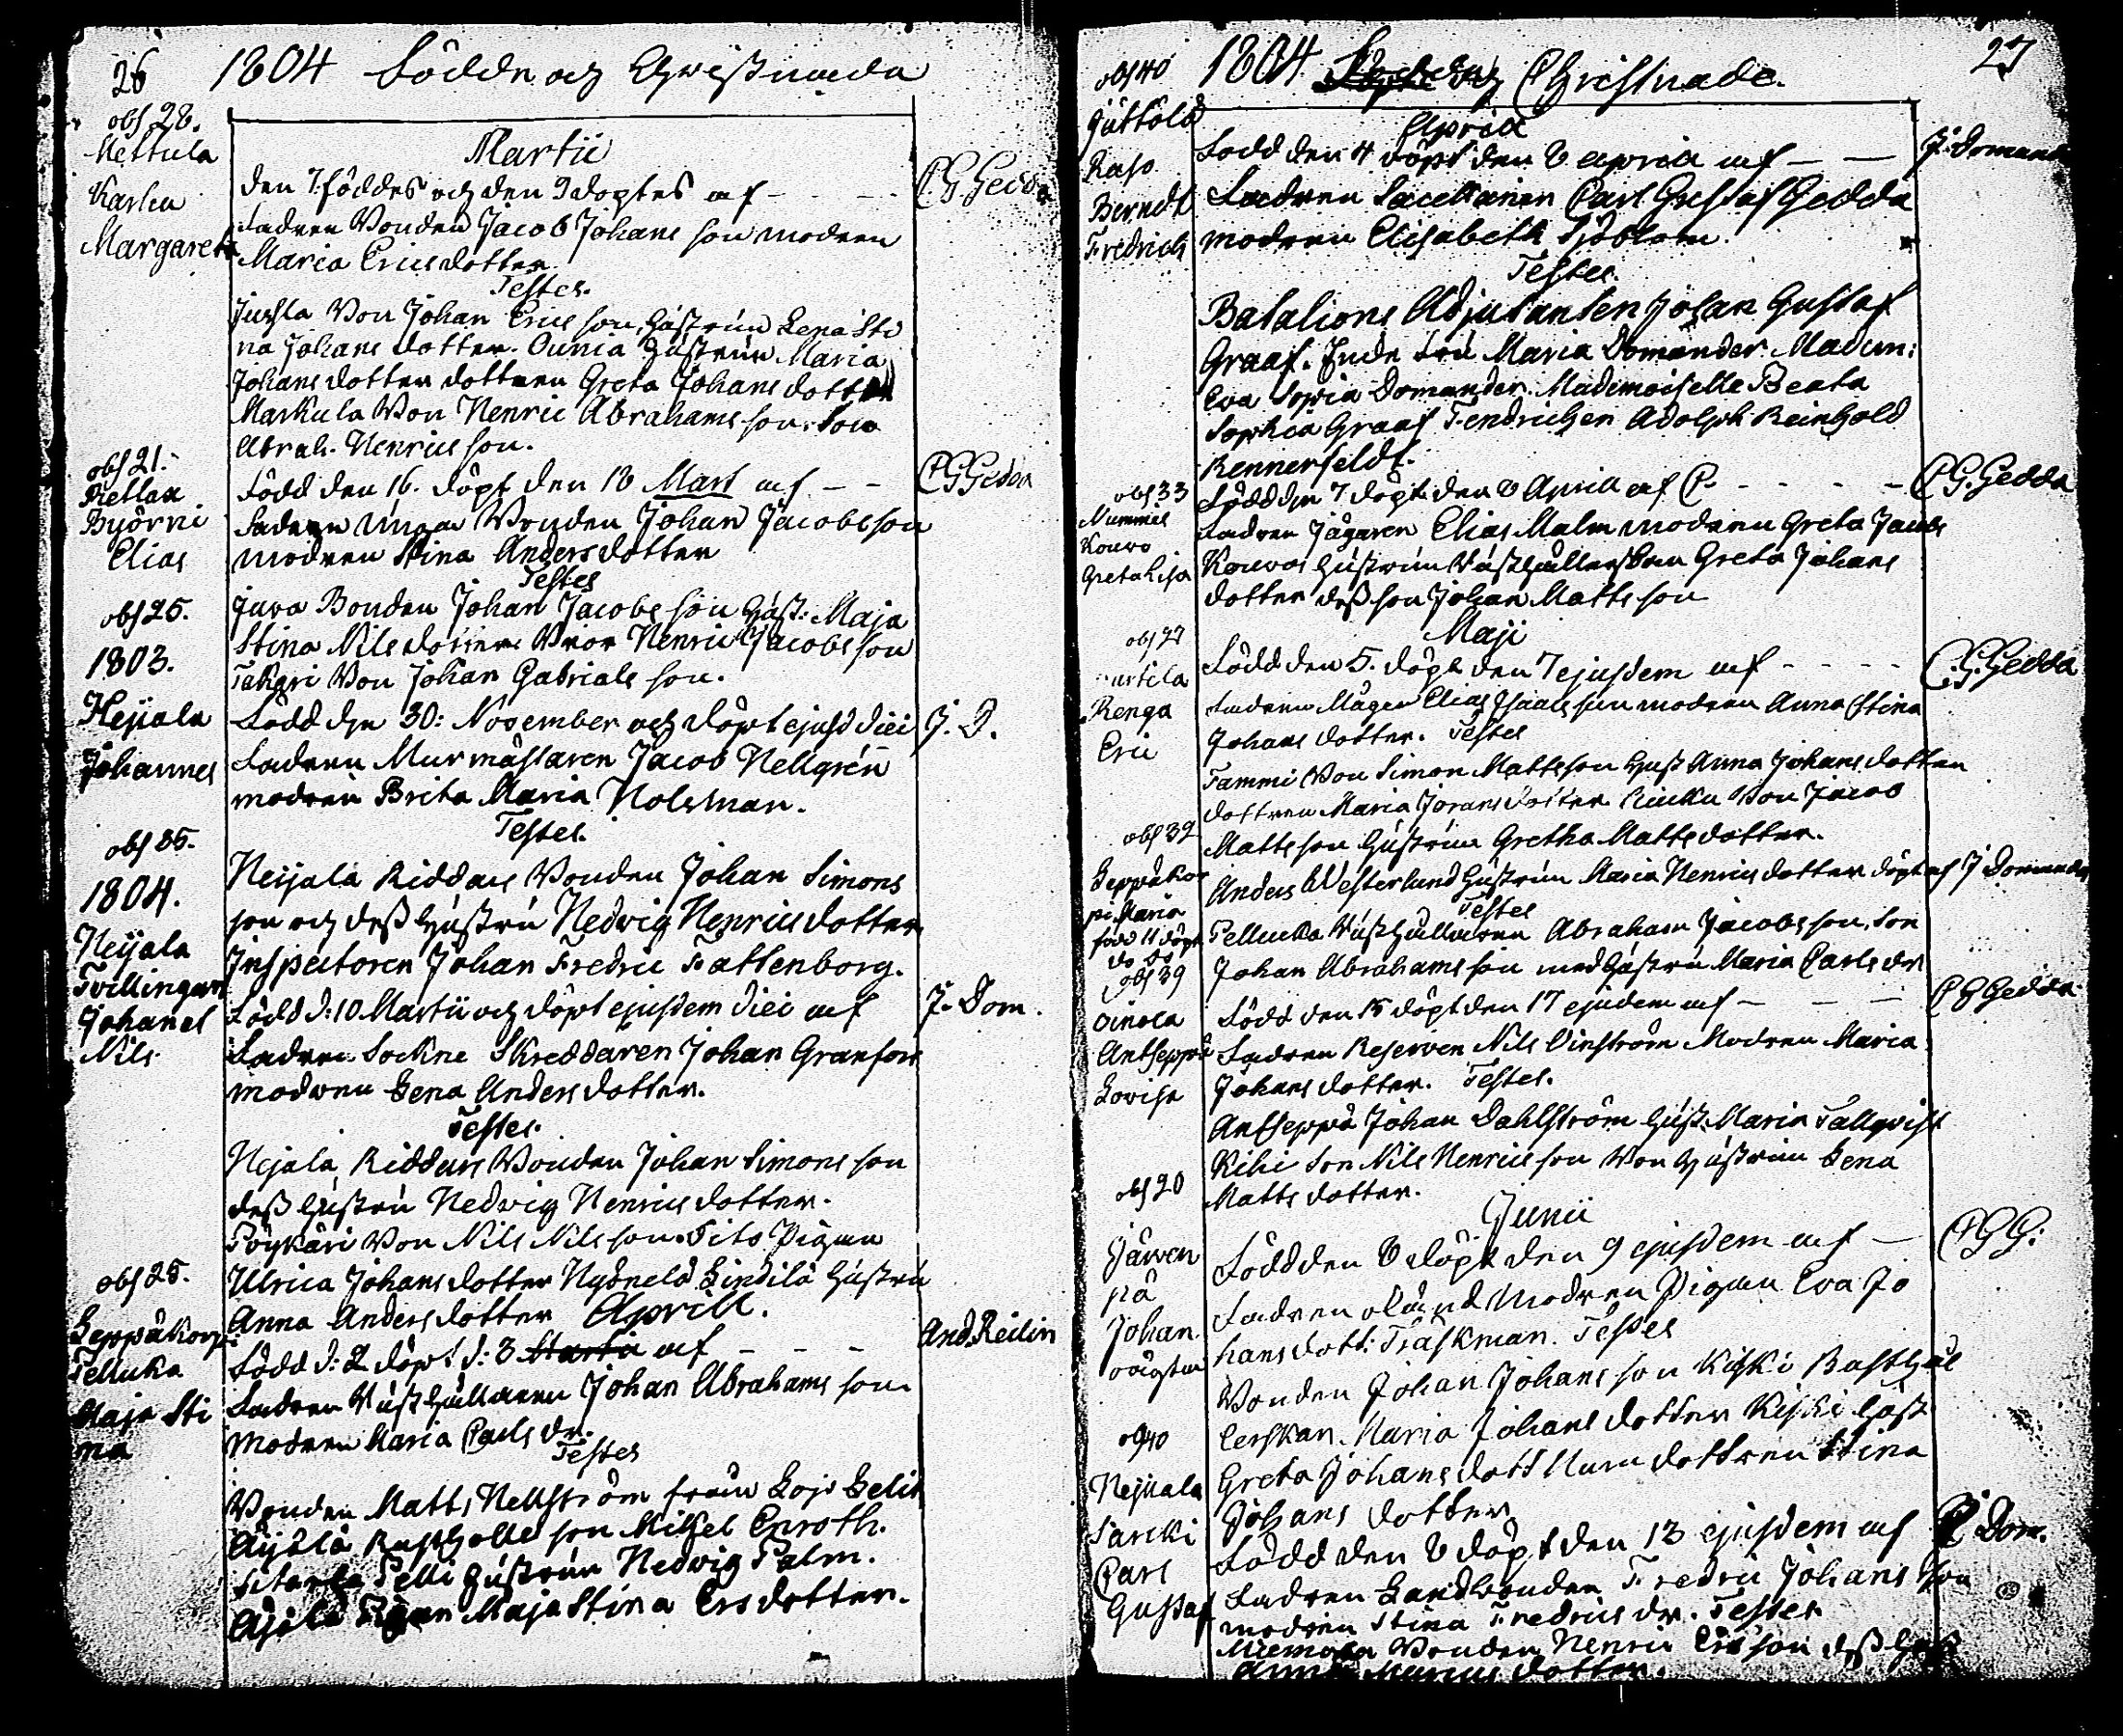 26 1804 Födde och Christnada
Martii
obs 28.
Mettula
Karlu
Margareta
den 7. föddes och den 9 doptes af - - - C G Gedda
Fadren Bonden Jacob Johans son modren
Maria Ericsdotter
Testes.
Jussla Bon Johan Erics son, hustrun Lena Sti
na Johans dotter. Ounia hustrun Maria
Johans dotter dottren Greta Johans dotter
Markula Bon Henric Abrahams son. Son
Abrah. Henrics son.
obs 21.
Björni
Elias
Född den 16. döpt den 18 Mart af - - C G Gedda
Fadren Unga Bonden Johan Jacobs son
modren Stina Anders dotter
Testes
obs 25.
Juva Bonden Johan Jacobs son hust: Maja
Stina Nils dotter Bror Henric Jacobs son
Takari Bon Johan Gabriels son.
1803.
Heijala
Johannes
Född den 30: November och döpt ejusd diei J. D.
Fadren Murmästaren Jacob Hellgren
modren Brita Maria Holsman.
Testes.
obs 35.
Heijala Riddars Bonden Johan Simons
son och dess hustru Hedvig Henrics dotter
Inspectoren Johan Fredric Fattenborg.
1804.
Heijala
Tvillingarn
Johanes
Nils
Född d: 10 Martii och döpt ejusdem diei af J. Dom.
Fadren Sockne Skreddaren Johan Granfors
modren Lena Anders dotter.
Testes.
Hejala Riddars Bonden Johan Simons son
dess hustru Hedvig Henrics dotter.
Pöykäri Bon Nils Nils son. Dito Pigan
Ulrica Johans dotter Nybneld Lindilä hustru
Anna Anders dotter
Aprill.
obs 25.
Leppäkorpi
Pelluka
Maja Sti
na
Född d: 2 döpt d: 3 Martii af - - - And Reilin
Fadren Rusthållaren Johan Abrahams son
Modren Maria Carls dr.
Testes
Bonden Matts Hellström från Lojo
Ajälä Rusthollss son Mikel Enroth.
Pelli hustrun Hedvig Palm.
Ajälä Pigan Maja Stina Ersdotter.
1804. och Christnade. 27
Aprill
obs 40
Raso
Berndt
Fredrich
Född den 4 döpt den 8 aprill af - - J. Domand
Fadren Sacellanen Carl Gustaf Gedda
modren Elisabeth Sjöblom.
Testes.
Batalions Adjutanten Johan Gustaf
Graaf. Enke Fru Maria Domander. Madam:
Eva Sophia Domander. Mademoiselle Beata
Sophia Graaf Fendrichen Adolph Reinhold
Rennerfeldt.
obs 33
Nummis
Kouvo
Greta Lisa
Född den 7 döpt den 8 Aprill af C. - - - - C G. Gedda
Fadren Jägaren Elias Malm modren Greta Jacobs
Kouvos hustrun Rusthållerskan Greta Johans
dotter dess son Johan Matts son
Maji
obs 27
Renga
Eric
Född den 5. döpt den 7 ejusdem af - - - - C. G. Gedda
Fadren Mågen Elias Isacs son modren Anna Stina
Johans dotter. Testes
Tammi Bon Simon Matts son hust Anna Johans dotter
dottren Maria Jörans dotter. Bon Jacob
Matts son hustrun Gretha Matts dotter.
obs 32
Leppäkor
pi Maria
född 11 döpt
do do
Anders Westerlund hustrun Maria Henrics dotter döpt af J Domander
Testes
Pelluka Rusthållaren Abraham Jacobs son, son
Johan Abrahams son med hustru Maria Carls dr
obs 39
Oinola
Antseppä
Lovisa
Född den 15 döpt den 17 ejudem af - - - C G Gedda
Fadren Reserven Nils Vinström Modren Maria
Johans dotter. Testes.
Antseppä Johan Dahlström hust. Maria Tallqvist
Kihi Son Nils Henrics son Bon hustrun Lena
Matts dotter.
Junii
obs 20
Järven
pä
Johan
oägta
Född den 8 döpt den 9 ejusdem af - C G G:
Fadren okänd Modren Pigan Eva Jo
hans dott: Träskman. Testes
Bonden Johan Johans son Kiski Rusthål
lerskan. Maria Johans dotter Kiski hust
Greta Johans dott dottren Stina
Johans dotter
obs 40
Hejuala
Carl
Gustaf
Född den 8 döpt den 13 ejusdem af J Dom.
Fadren Landbonden Fredric Johans son
modren Stina Fredrics dr. Testes
Miemola Bonden Henric Ers son dess hust
dotter.